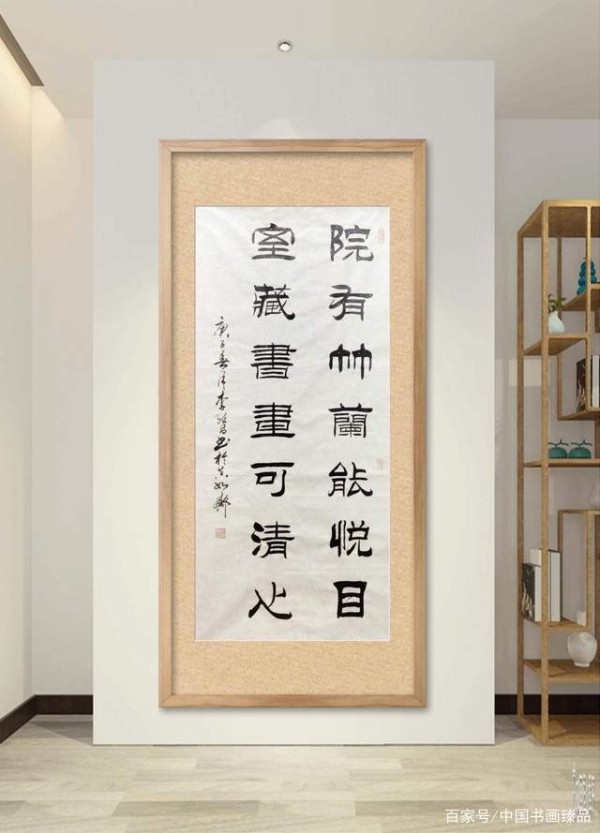 院有竹蘭能悅目
室藏書畫可清心
庚子春月李
百家号/中国书画臻品